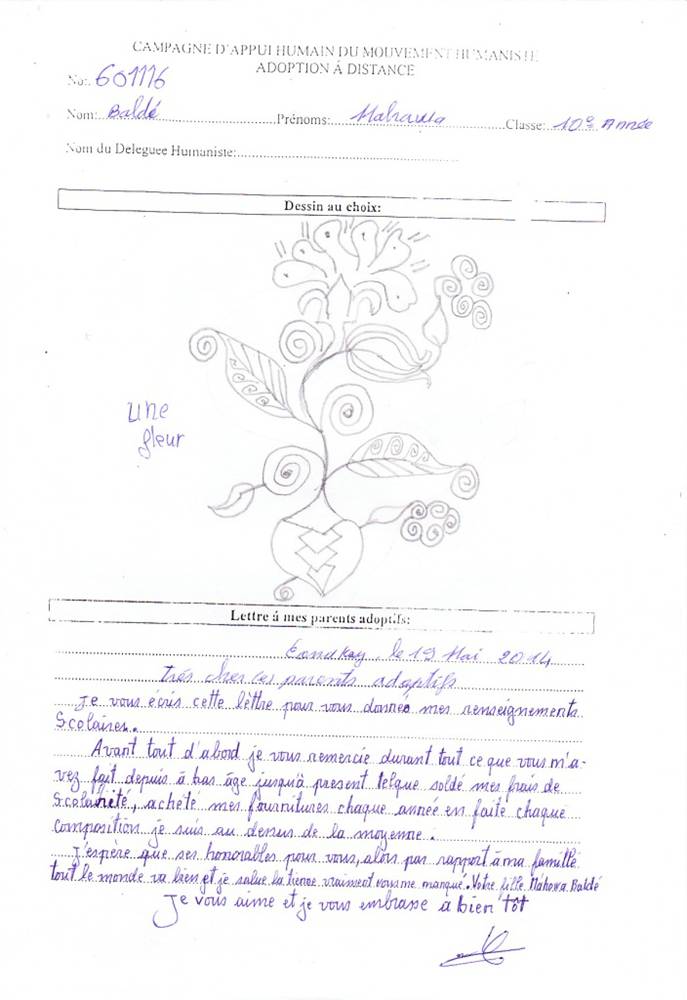 CAMPAGNE D'APPUI HUMAIN DU MOUVEMENT HUMANISTE
ADOPTION Á DISTANCE
No: 601116
Nom: Baldé Prénoms: Mahawa Classe: 10e Année
Nom du Deleguee Humaniste:
Dessin au choix:
une
fleur
Lettre á mes parents adoptifs:
le 19 Mai 2014
très cher ces parents adoptifs
Je vous écris cette lèttre pour vous donneé mes renseignements
Scolaires.
Avant tout d'abord je vous remercie durant tout ce que vous m'a-
vez fait depuis à bas âge jusqu'à present telque soldé mes frais de
Scolarité, acheté mes fournitures chaque année en faite chaque
composition je suis au dessus de la moyenne.
J'espère que ses honorables pour vous, alors par rapport à ma famille
tout le monde va bien et je salue la tienne vraiment vous me manqué. Votre fille Mahawa Baldé
Je vous aime et je vous embrasse à bien tôt